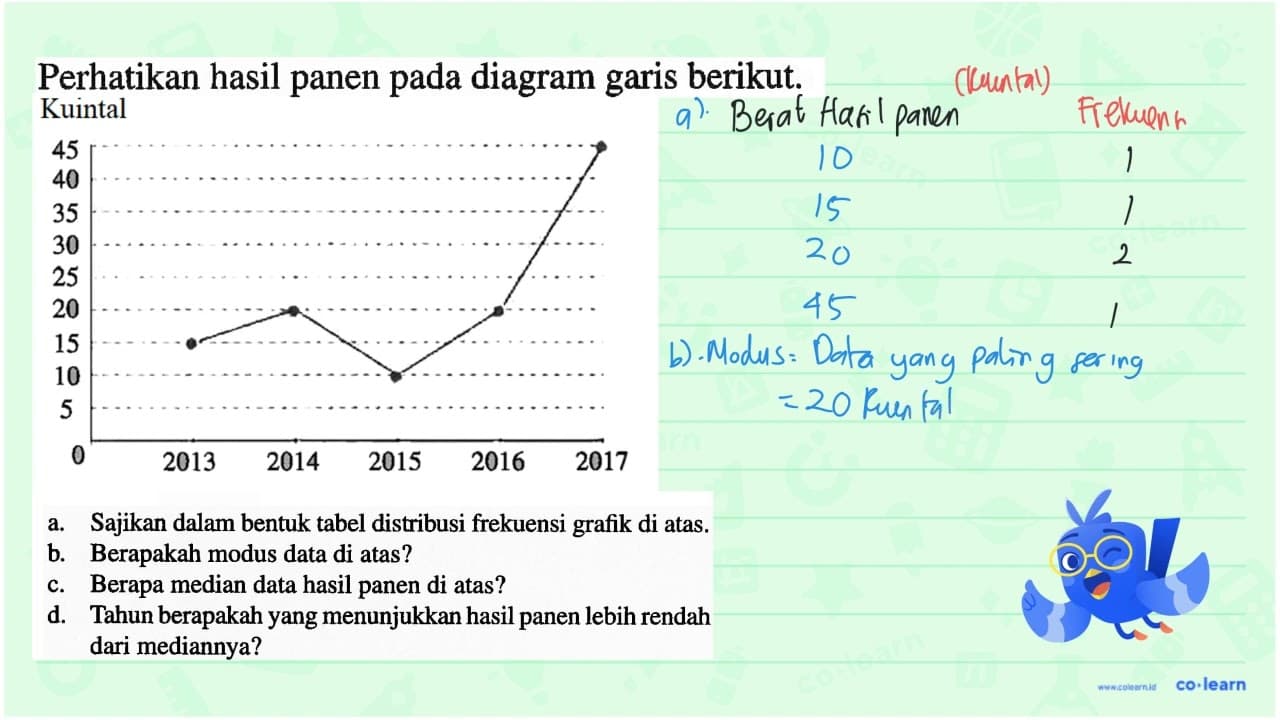 Perhatikan hasil panen pada diagram garis berikut.
Kuintal
45
40
35
30
25
20
15
10
5
0
2013 2014 2015 2016 2017
a. Sajikan dalam bentuk tabel distribusi frekuensi grafik di atas.
b. Berapakah modus data di atas?
c. Berapa median data hasil panen di atas?
d. Tahun berapakah yang menunjukkan hasil panen lebih rendah
dari mediannya?
(Kuintal)
a). Berat Hasil panen Frekuensi
10 1
15 1
20 2
45 1
b). Modus = Data yang paling sering
= 20 Kuintal
www.colearn.id co·learn